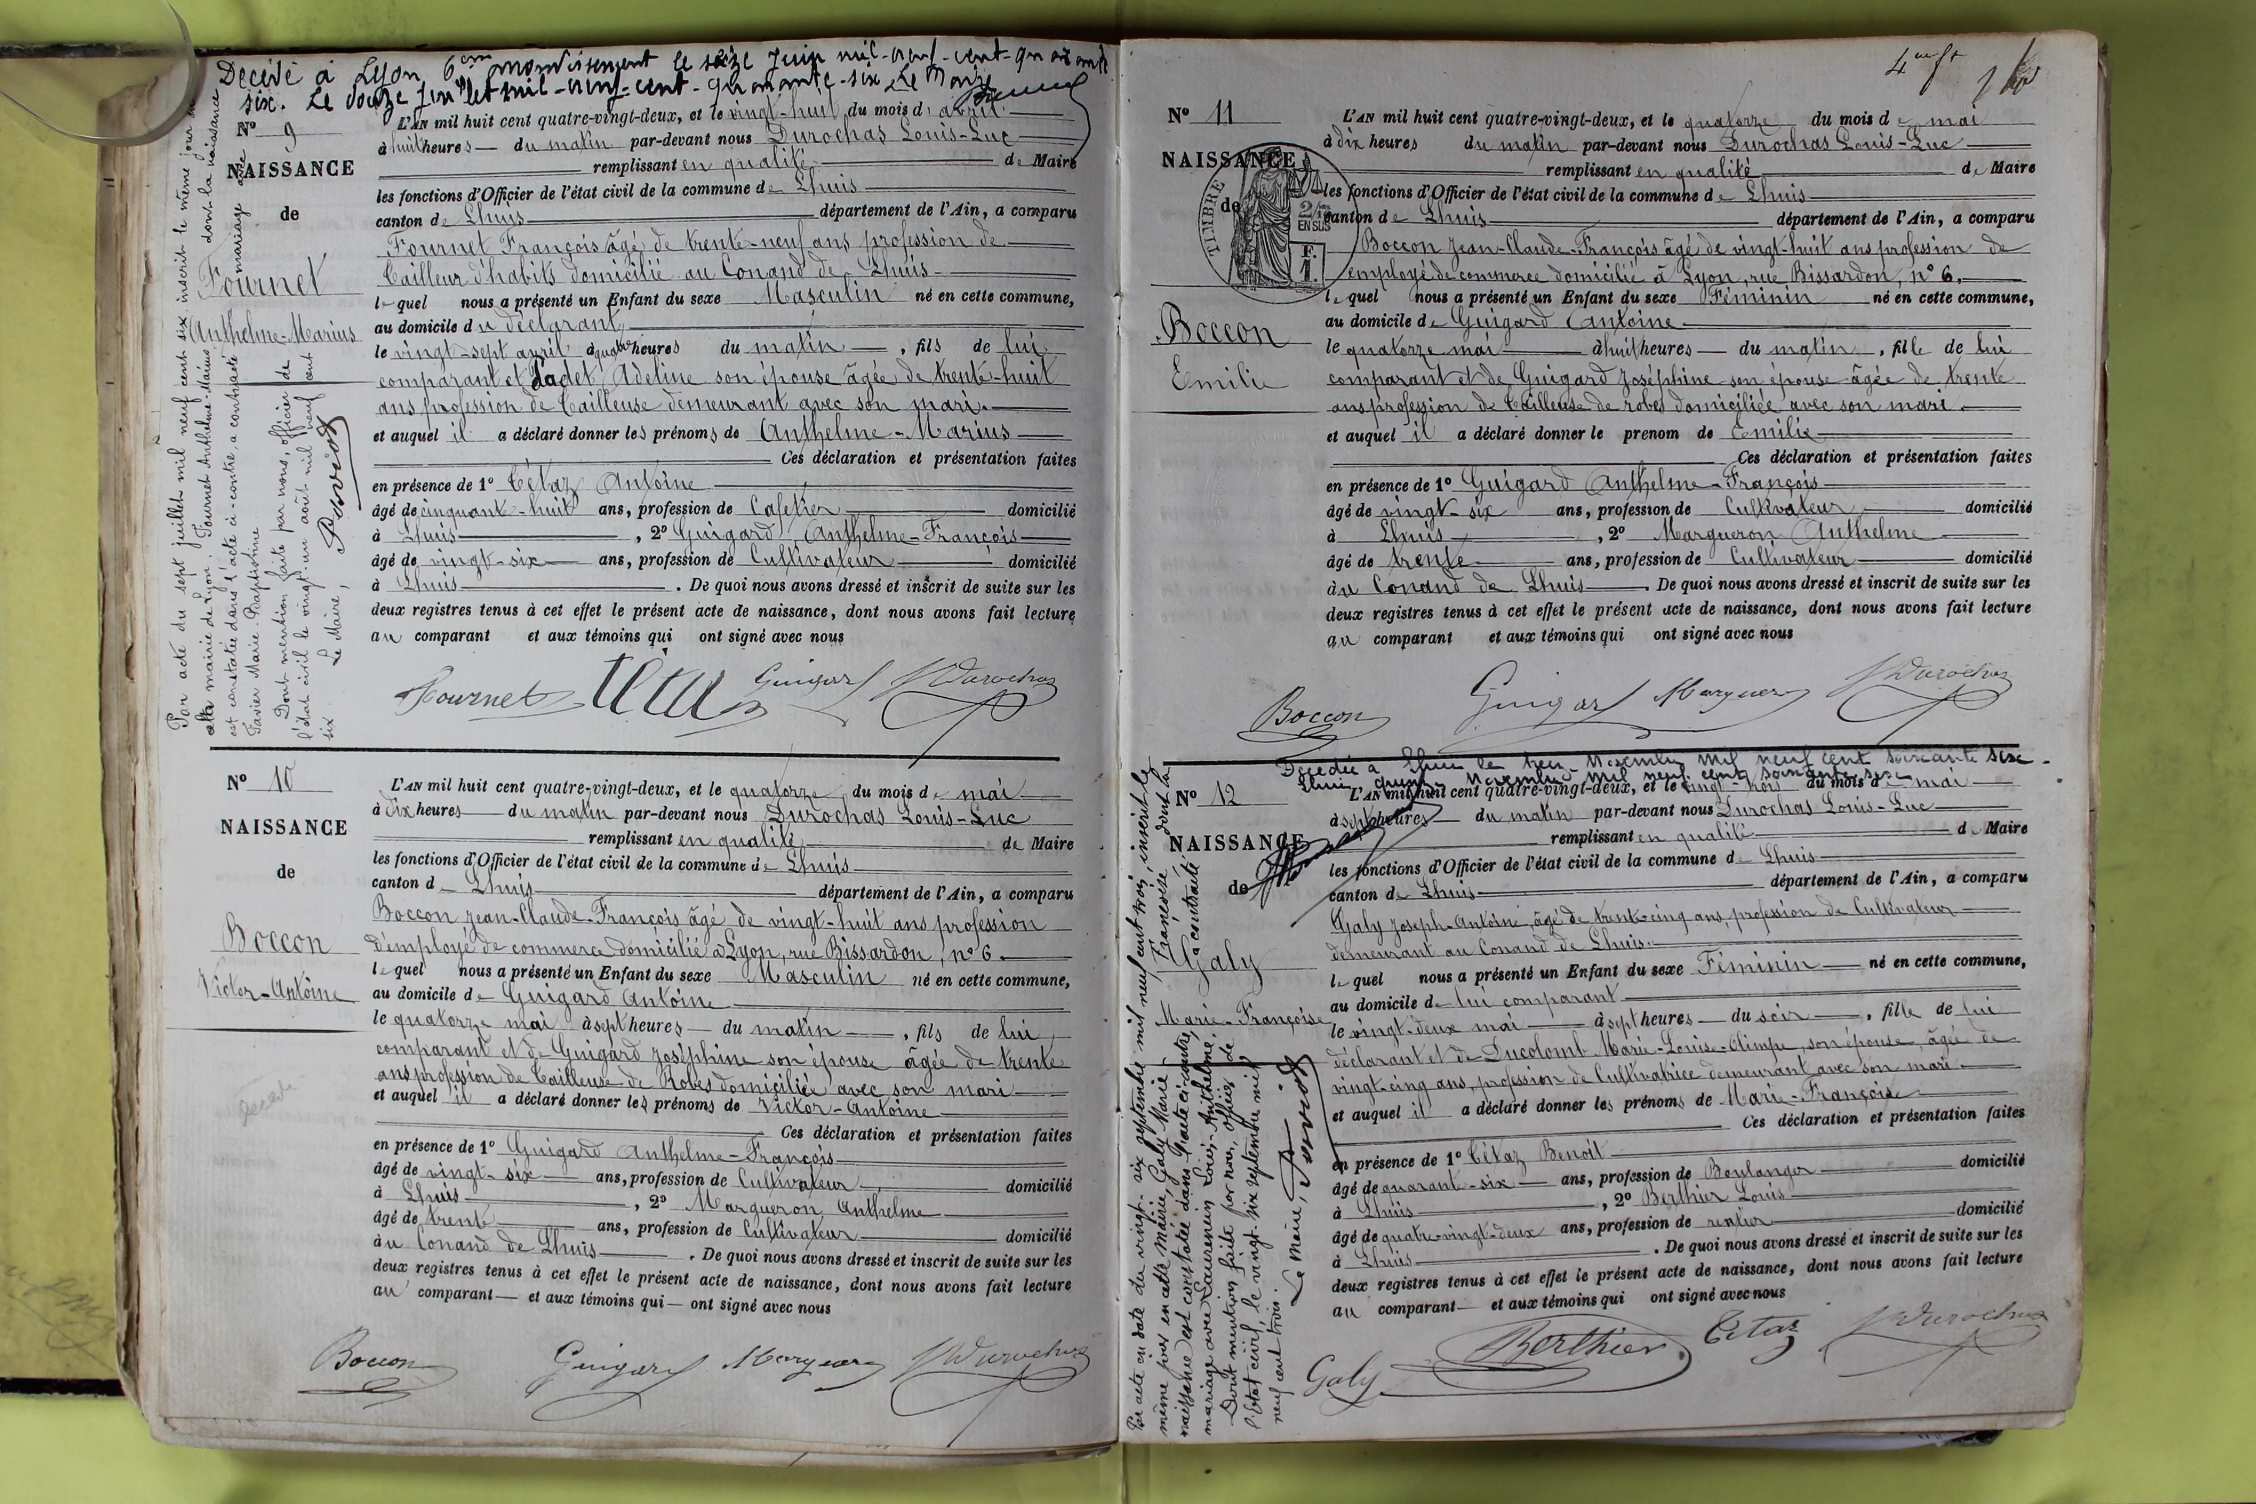 Décédé à Lyon 6em arrondissement le seize Juin mil-neuf-cent-quarante
six. Le douze Juillet mil-neuf-cent-quarante-six Le Maire
N° 9
NAISSANCE
de
Fournet
Anthelme-Marius
Par acte du sept juillet mil neuf cent six inscrit le même jour
mairie de Lyon. Fournet Anthelme-Marius dont la naissance
est constatée dans l'acte ci-contre, a contracté mariage avec
Favier Marie-Baptistine
Dont mention faite par nous, officier de
l'état civil le vingt-un août mil neuf cent
six. Le Maire,
L'AN mil huit cent quatre-vingt-deux, et le vingt-huit du mois d'avril
à huit heures du matin par-devant nous Durochas Louis-Luc
remplissant en qualité de Maire
les fonctions d'Officier de l'état civil de la commune de Lhuis
canton de Lhuis département de l'Ain, a comparu
Fournet François âgé de trente-neuf ans profession de
Tailleur d'habits domicilié au Conand de Lhuis
lequel nous a présenté un Enfant du sexe Masculin né en cette commune,
au domicile du déclarant
le vingt-sept avril à quatre heures du matin, fils de lui
comparant et Cadet Adeline son épouse âgée de trente-huit
ans profession de Tailleuse demeurant avec son mari.
et auquel il a déclaré donner les prénoms de Anthelme-Marius
Ces déclaration et présentation faites
en présence de 1° Tétaz Antoine
âgé de cinquant-huit ans, profession de Cafetier domicilié
à Lhuis, 2° Guigard Anthelme-François
âgé de vingt-six ans, profession de Cultivateur domicilié
à Lhuis. De quoi nous avons dressé et inscrit de suite sur les
deux registres tenus à cet effet le présent acte de naissance, dont nous avons fait lecture
au comparant et aux témoins qui ont signé avec nous
Fournet Tétaz Guigard Durochas
N° 10
NAISSANCE
de
Boccon
Victor-Antoine
L'AN mil huit cent quatre-vingt-deux, et le quatorze du mois de mai
à dix heures du matin par-devant nous Durochas Louis-Luc
remplissant en qualité de Maire
les fonctions d'Officier de l'état civil de la commune de Lhuis
canton de Lhuis département de l'Ain, a comparu
Boccon Jean-Claude-François âgé de vingt-huit ans profession
d'employé de commerce domicilié à Lyon, rue Bissardon, n° 6.
lequel nous a présenté un Enfant du sexe Masculin né en cette commune,
au domicile de Guigard Antoine
le quatorze mai à sept heures du matin, fils de lui
comparant et de Guigard Joséphine son épouse âgée de trente
ans profession de Tailleuse de Robes domiciliée avec son mari
et auquel il a déclaré donner les prénoms de Victor-Antoine
Ces déclaration et présentation faites
en présence de 1° Guigard Anthelme-François
âgé de vingt-six ans, profession de Cultivateur domicilié
à Lhuis, 2° Margueron Anthelme
âgé de trente ans, profession de Cultivateur domicilié
àu Conand de Lhuis. De quoi nous avons dressé et inscrit de suite sur les
deux registres tenus à cet effet le présent acte de naissance, dont nous avons fait lecture
au comparant et aux témoins qui ont signé avec nous
Boccon Guigard Margueron Durochas
N° 11
NAISSANCE
de
TIMBRE
2/10 EN SUS
F. 1.
Boccon
Emilie
L'AN mil huit cent quatre-vingt-deux, et le quatorze du mois de mai
à dix heures du matin par-devant nous Durochas Louis-Luc
remplissant en qualité de Maire
les fonctions d'Officier de l'état civil de la commune de Lhuis
canton de Lhuis département de l'Ain, a comparu
Boccon Jean-Claude-François âgé de vingt-huit ans profession de
employé de commerce domicilié à Lyon, rue Bissardon, n° 6.
lequel nous a présenté un Enfant du sexe Féminin né en cette commune,
au domicile de Guigard Antoine
le quatorze mai à huit heures du matin, fille de lui
comparant et de Guigard Joséphine son épouse âgée de trente
ans profession de Tailleuse de robes domiciliée avec son mari.
et auquel il a déclaré donner le prenom de Emilie
Ces déclaration et présentation faites
en présence de 1° Guigard Anthelme-François
âgé de vingt-six ans, profession de Cultivateur domicilié
à Lhuis, 2° Margueron Anthelme
âgé de trente ans, profession de Cultivateur domicilié
àu Conand de Lhuis. De quoi nous avons dressé et inscrit de suite sur les
deux registres tenus à cet effet le présent acte de naissance, dont nous avons fait lecture
au comparant et aux témoins qui ont signé avec nous
Boccon Guigard Margueron Durochas
Décédée à Lhuis le Novembre mil neuf cent soixante six.
Lhuis Novembre mil neuf cent soixante six
N° 12
NAISSANCE
de
Galy
Marie-Françoise
Par acte en date du vingt-six septembre mil neuf cent trois, inscrit le
même jour en cette Mairie, Galy Marie Françoise dont la
naissance est constatée dans l'acte ci-contre, a contracté
mariage avec Laurencin Louis-Anthelme.
Dont mention faite par nous, officier de
l'état civil, le vingt-six septembre mil
neuf cent trois. Le Maire,
L'AN mil huit cent quatre-vingt-deux, et le vingt-trois du mois de mai
à sept heures du matin par-devant nous Durochas Louis-Luc
remplissant en qualité de Maire
les fonctions d'Officier de l'état civil de la commune de Lhuis
canton de Lhuis département de l'Ain, a comparu
Galy Joseph-Antoine, âgé de trente-cinq ans, profession de Cultivateur
demeurant au Conand de Lhuis.
lequel nous a présenté un Enfant du sexe Féminin né en cette commune,
au domicile de lui comparant
le vingt-deux mai à sept heures du soir, fille de lui
déclarant et de Ducolomb Marie-Louise-Olimpe, son épouse, âgée de
vingt-cinq ans, profession de Cultivatrice demeurant avec son mari.
et auquel il a déclaré donner les prénoms de Marie-Françoise
Ces déclaration et présentation faites
en présence de 1° Tétaz Benoît
âgé de quarant-six ans, profession de Boulanger domicilié
à Lhuis, 2° Berthier Louis
âgé de quatre-vingt-deux ans, profession de rentier domicilié
à Lhuis. De quoi nous avons dressé et inscrit de suite sur les
deux registres tenus à cet effet le présent acte de naissance, dont nous avons fait lecture
au comparant et aux témoins qui ont signé avec nous
Galy Berthier Tétaz Durochas